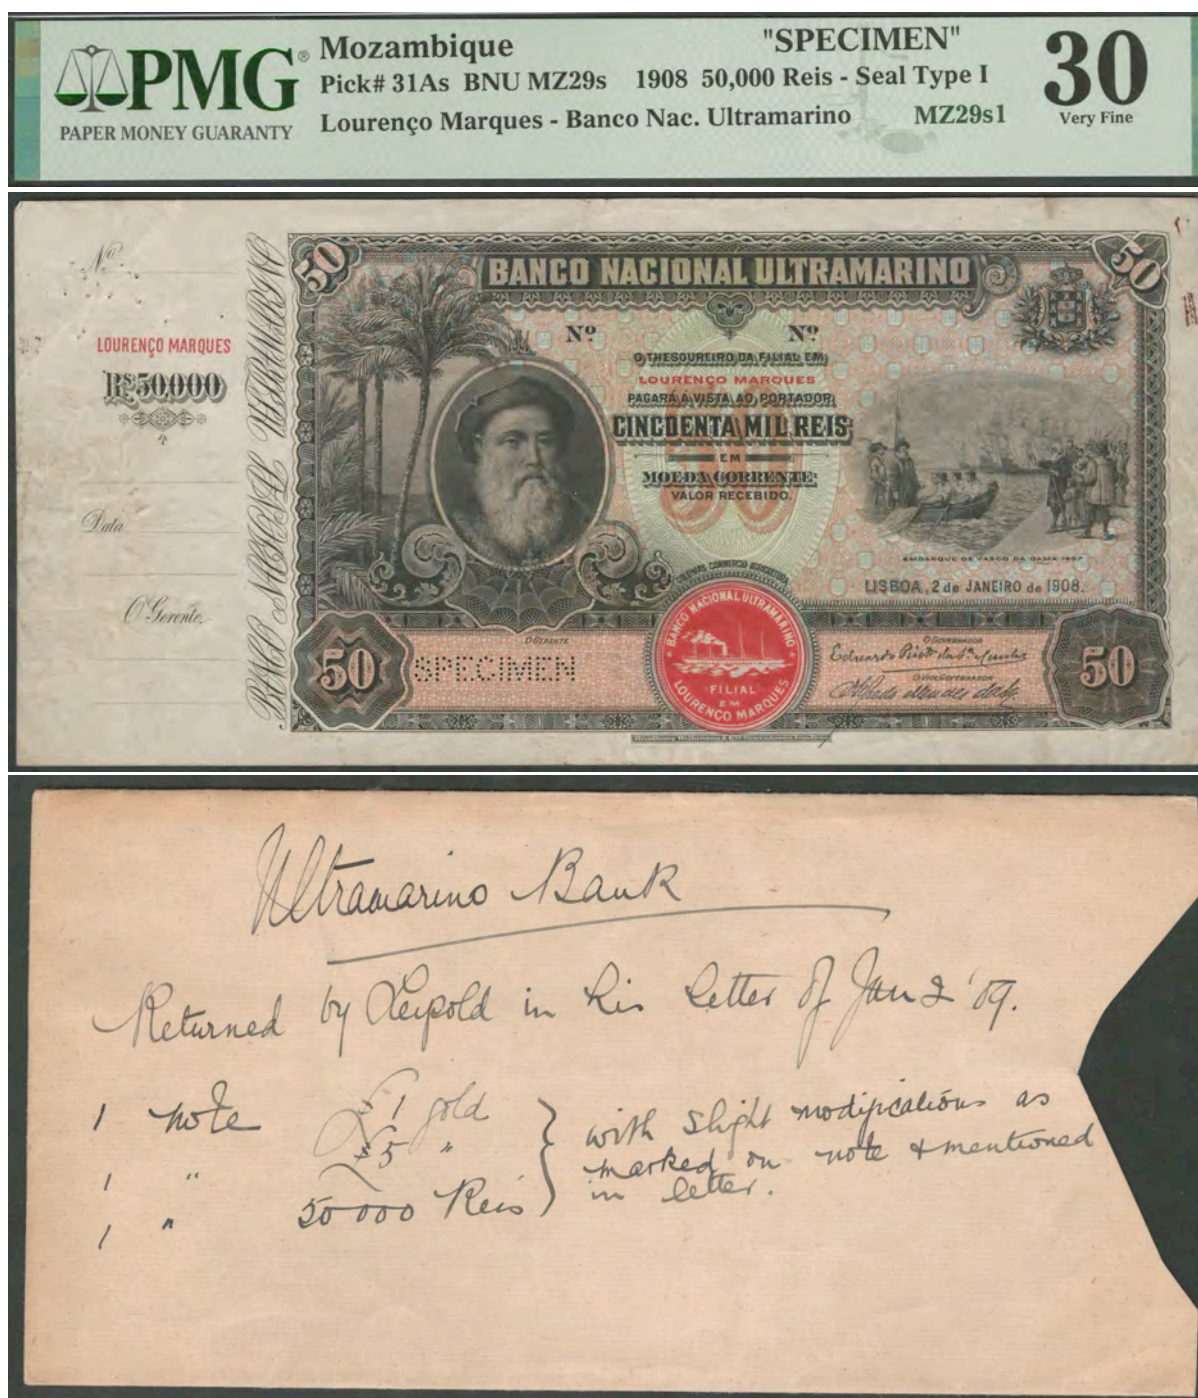 PMG®
PAPER MONEY GUARANTY
Mozambique "SPECIMEN"
Pick# 31As BNU MZ29s 1908 50,000 Reis - Seal Type I
Lourenço Marques - Banco Nac. Ultramarino MZ29s1
30
Very Fine
Nº
LOURENÇO MARQUES
RS50,000
Data
O Gerente,
BANCO NACIONAL ULTRAMARINO
50
BANCO NACIONAL ULTRAMARINO
50
Nº Nº
O THESOUREIRO DA FILIAL EM
LOURENÇO MARQUES
PAGARÁ Á VISTA AO PORTADOR
CINCOENTA MIL REIS
50
EM
MOEDA CORRENTE
VALOR RECEBIDO.
EMBARQUE DE VASCO DA GAMA 1497
LISBOA, 2 de JANEIRO de 1908.
COLONIAS COMMERCIO AGRICULTURA
50
O GERENTE
SPECIMEN
BANCO NACIONAL ULTRAMARINO
FILIAL
EM
LOURENCO MARQUES
O GOVERNADOR
Eduardo Pinto da
O VICE GOVERNADOR
50
Ultramarino Bank
Returned by Leipold in his letter of Jan 2 '09.
1 note £1 gold
1 " £5 "
1 " 50000 Reis
with slight modifications as
marked on note & mentioned
in letter.